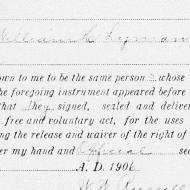 William H. Lyman
own to me to be the same person s whose
the foregoing instrument appeared before
that they signed, sealed and deliver
free and voluntary act, for the uses
ing the release and waiver of the right of
er my hand and Official se
A. D. 1906
W. H.